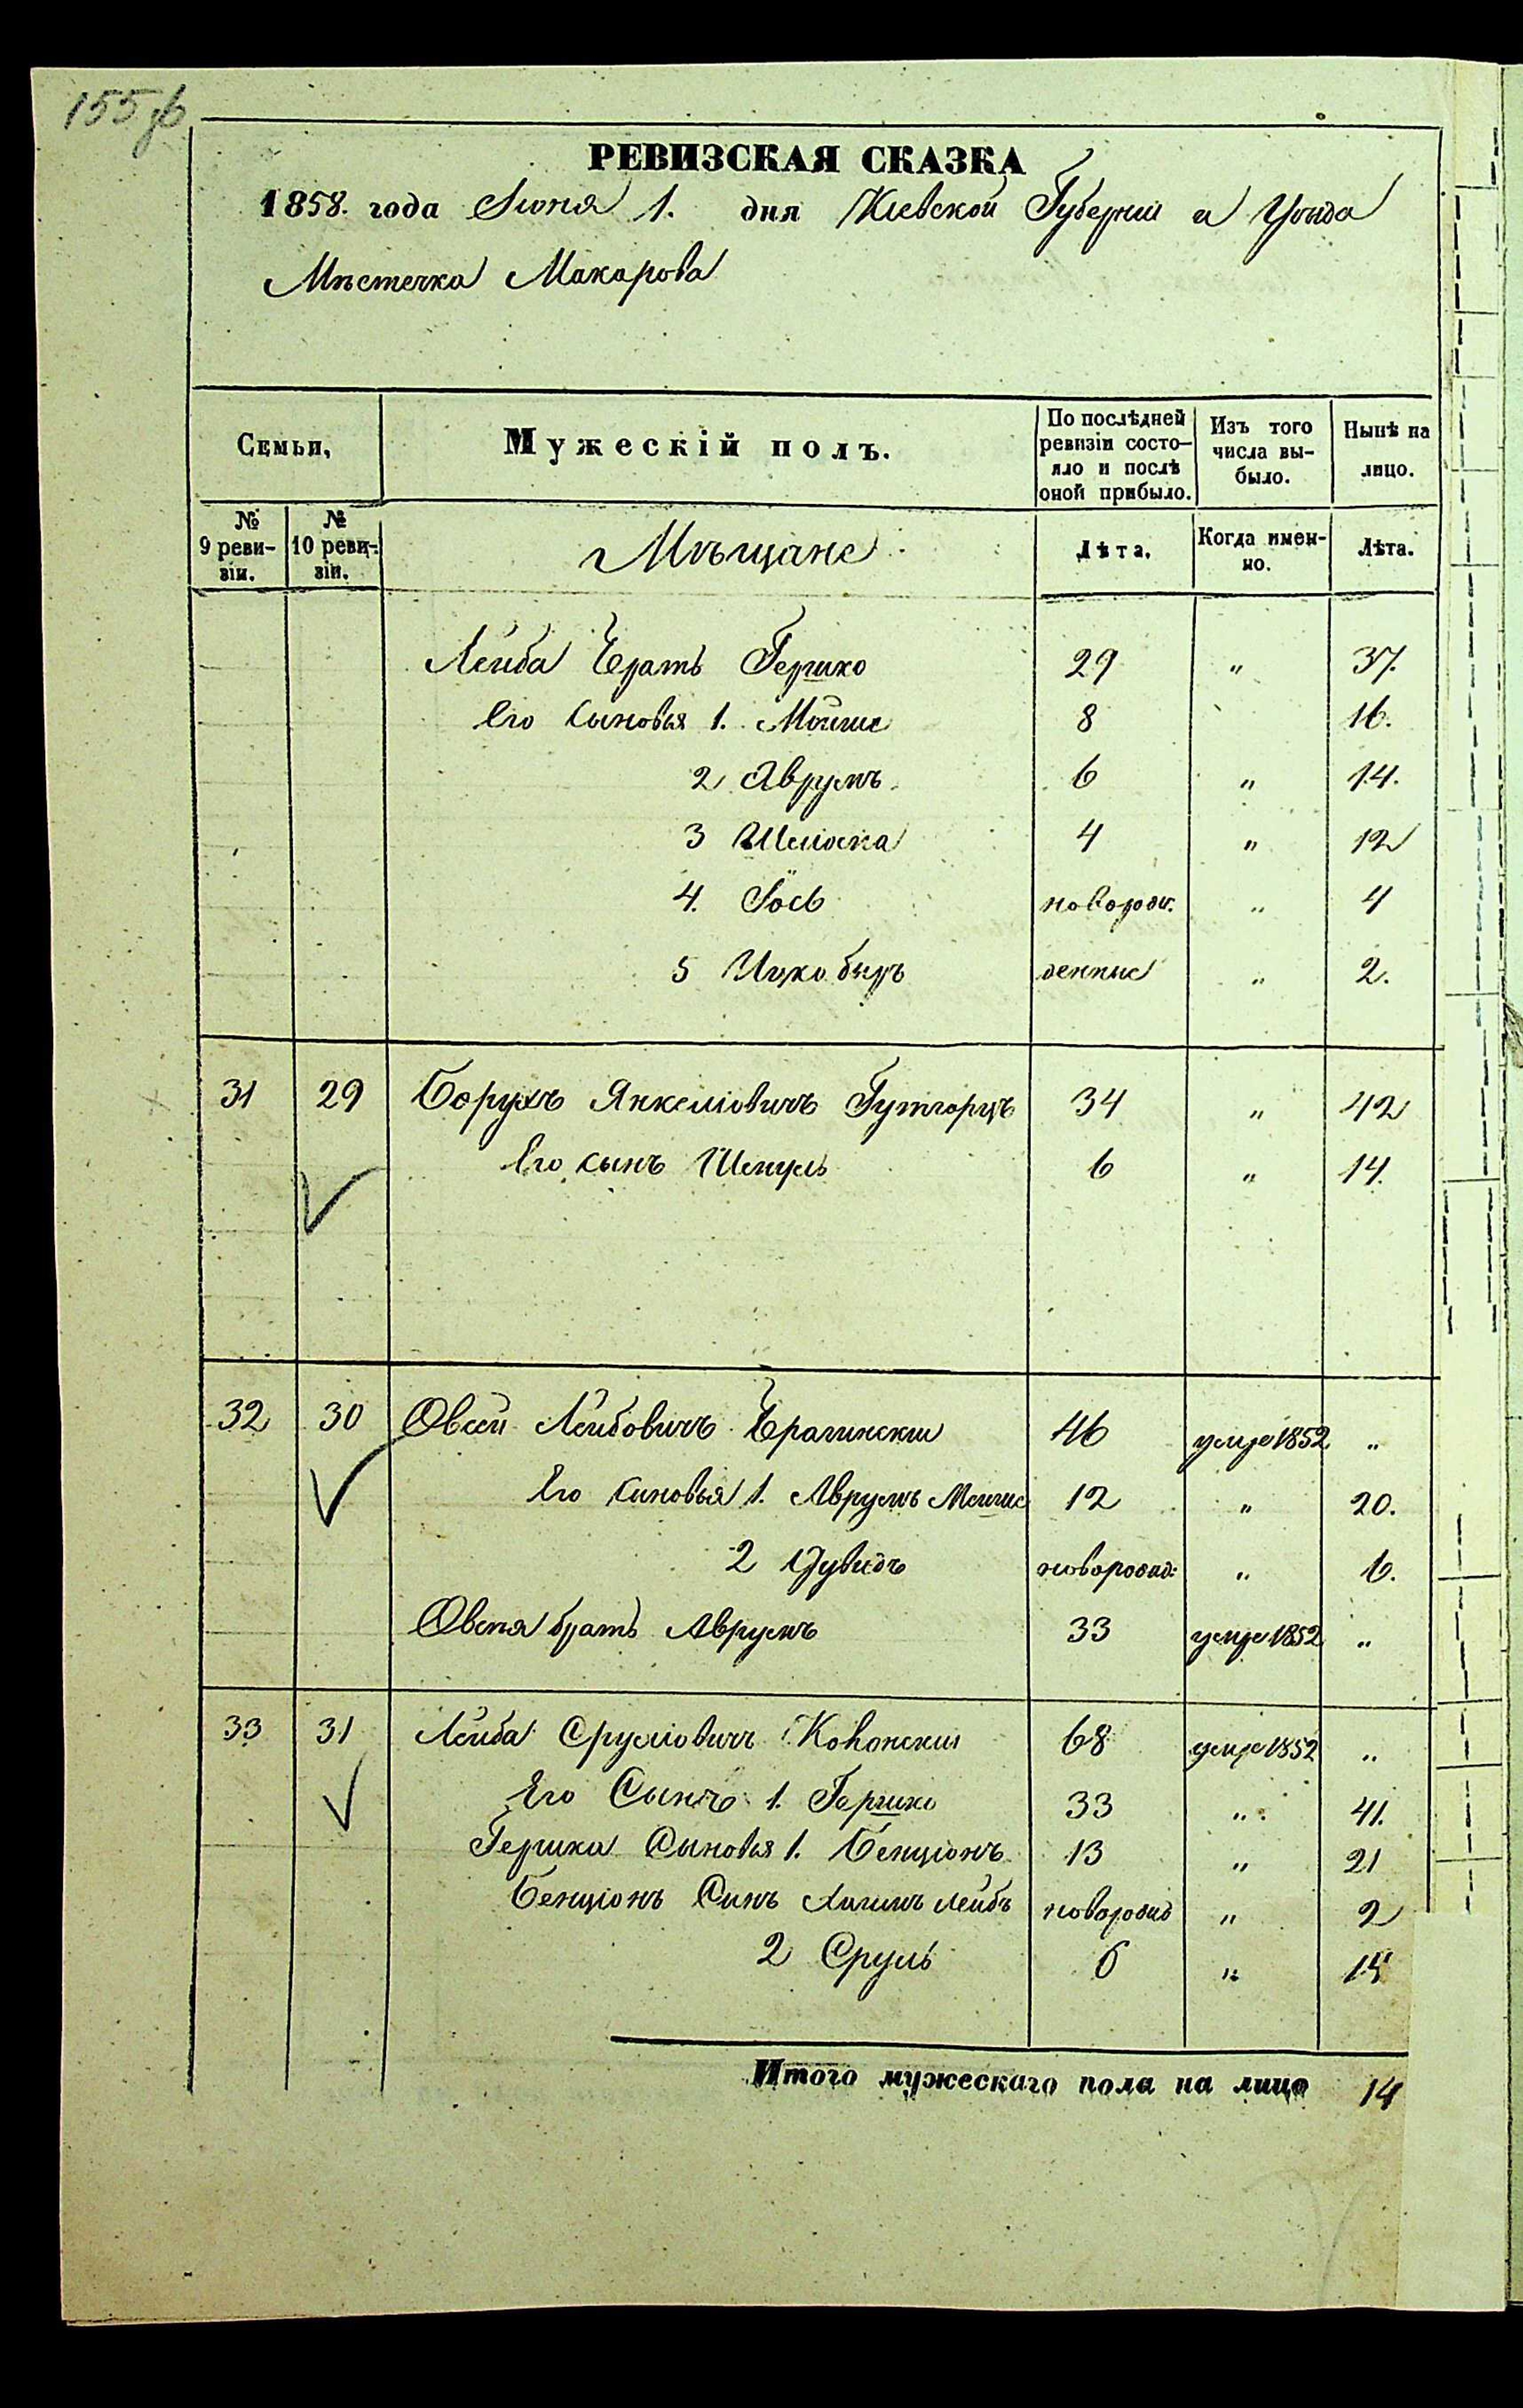 155 об
РЕВИЗСКАЯ СКАЗКА
1858. года Іюня 1. дня Кіевской Губерніи и Уѣзда
Мѣстечка Макарова
Семьи,
Мужескій полъ.
По послѣдней ревизіи состо-яло и послѣ оной прибыло.
Изъ того числа вы-было.
Нынѣ на лицо.
№ 9 реви-зіи.
№ 10 реви-зіи.
Мѣщане
Лѣта.
Когда имен-но.
Лѣта.
Лейба братъ Гершко 29 " 37.
Его сыновья 1. Мойше 8 16.
2 Аврумъ 6 " 14.
3 Шліомка 4 " 12
4. Іось новорож. " 4
5 Ицко беръ денные " 2.
31 29 Борухъ Янкеліовичъ Гутгорцъ 34 " 42
Его сынъ Шмуль 6 " 14.
32 30 Овсей Лейбовичъ Брагинскій 46 умре 1852 "
Его сыновья 1. Аврумъ Мойше 12 " 20.
2 Дувидъ новорожд: " 6.
Овсея братъ Аврумъ 33 умре 1852 "
33 31 Лейба Сруліовичъ 68 умре 1852 "
Его Сынъ 1. Гершко 33 " 41.
Гершка Сыновья 1. Бенціонъ 13 " 21
Бенціонъ Сынъ Хаимъ Лейбъ новорожд " 2
2 Сруль 6 "
Итого мужескаго пола на лицо 14